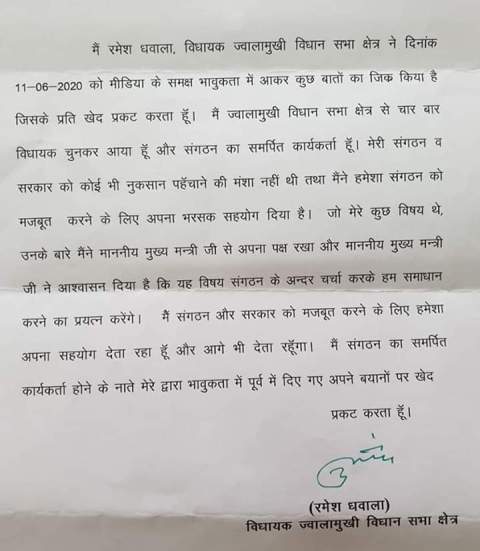 मैं रमेश धवाला, विधायक ज्वालामुखी विधान सभा क्षेत्र ने दिनांक
11–06–2020 को मीडिया के समक्ष भावुकता में आकर कुछ बातों का जिक्र किया है
जिसके प्रति खेद प्रकट करता हूॅं। मैं ज्वालामुखी विधान सभा क्षेत्र से चार बार
विधायक चुनकर आया हूॅं और संगठन का समर्पित कार्यकर्ता हूॅं। मेरी संगठन व
सरकार को कोई भी नुकसान पहॅंचाने की मंशा नहीं थी तथा मैंने हमेशा संगठन को
मजबूत करने के लिए अपना भरसक सहयोग दिया है। जो मेरे कुछ विषय थे,
उनके बारे मैंने माननीय मुख्य मन्त्री जी से अपना पक्ष रखा और माननीय मुख्य मन्त्री
जी ने आश्वासन दिया है कि यह विषय संगठन के अन्दर चर्चा करके हम समाधान
करने का प्रयत्न करेंगे। मैं संगठन और सरकार को मजबूत करने के लिए हमेशा
अपना सहयोग देता रहा हूॅं और आगे भी देता रहूॅंगा। मैं संगठन का समर्पित
कार्यकर्ता होने के नाते मेरे द्वारा भावुकता में पूर्व में दिए गए अपने बयानों पर खेद
प्रकट करता हूॅं।
(रमेश धवाला)
विधायक ज्वालामुखी विधान सभा क्षेत्र